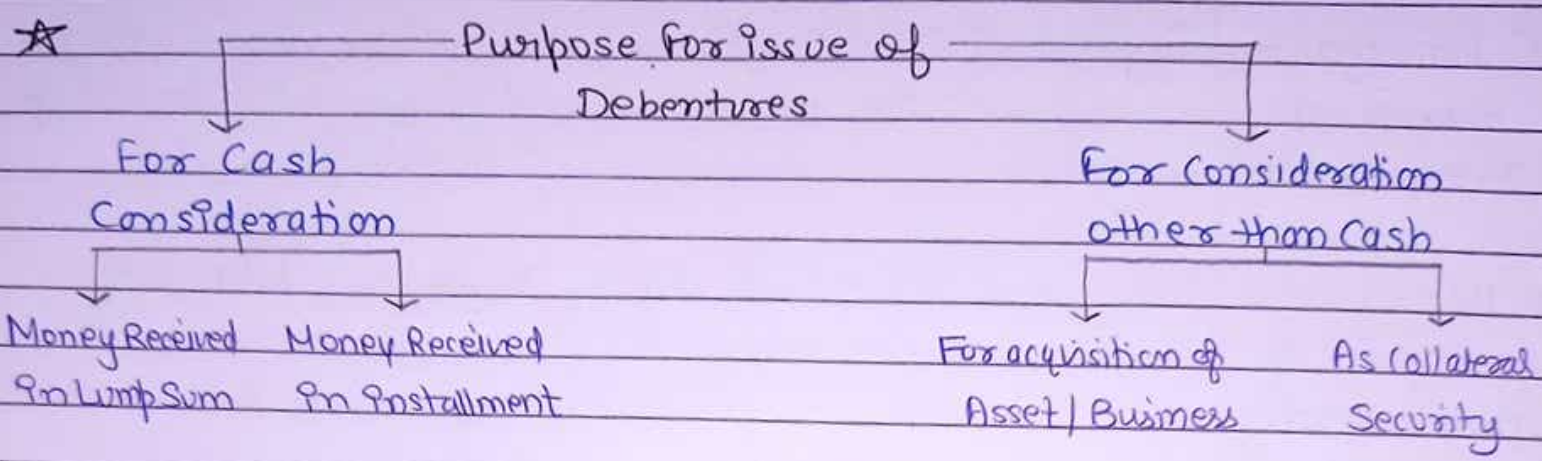 Purpose for issue of
Debentures
For Cash
Consideration
For Consideration
other than Cash
Money Received
in Lump Sum
Money Received
in installment
For acquisition of
Asset / Business
As Collateral
Security